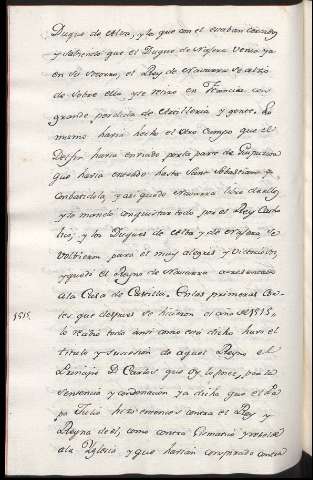 Duque de Alva, y lo que con el estaban cercados
y sabiendo que el Duque de Naxera venia ya
en su socorro, el Rey de Navarra se alzó
de sobre ella y se retiró en Francia con
grande perdida de Artilleria y gente. Lo
mismo havia hecho el otro Campo que el
Delfin havia enviado por la parte de Guipuzcoa
que havia entrado hasta Sant Sebastian y
combatidola, y asi quedó Navarra libre de ellos
y lo mandó conquistar todo por el Rey Catho
lico, y los Duques de Alva y de Naxera, se
volbieron para el muy alegres y victoriosos,
y quedó el Reyno de Navarra
ala Casa de Castilla. En las primeras Cor-
tes que despues se hicieron el año de 1515,
1515.
lo recibió todo ansi como esta dicho huvo el
titulo y succesion de aquel Reyno el
Principe D. Carlos que oy lo posee, por la
sentencia y condenacion ya dicha que el Pa
pa Julio hizo entonces contra el Rey y
Reyna del, como contra Cismatico y rebelde
ala Yglesia y que havian conspirado contra